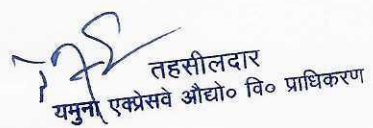 तहसीलदार
यमुना एक्प्रेसवे औद्यो० वि० प्राधिकरण